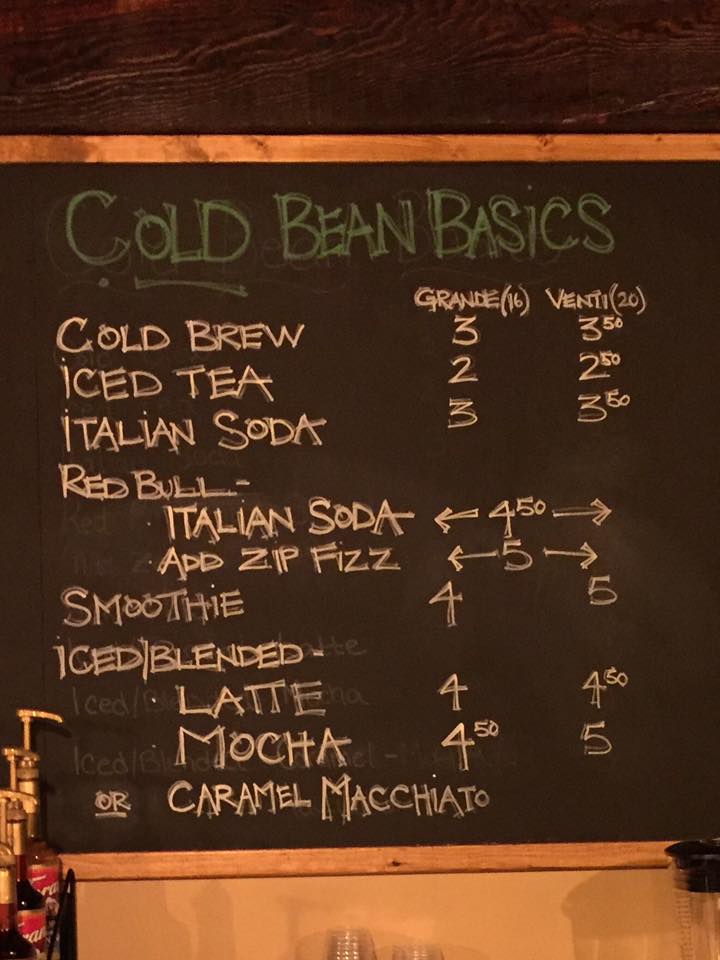 COLD BEAN BASICS
GRANDE(16) VENTI(20)
COLD BREW 3 3⁵⁰
ICED TEA 2 2⁵⁰
ITALIAN SODA 3 3⁵⁰
RED BULL-
· ITALIAN SODA ← 4⁵⁰ → 
· ADD ZIP FIZZ ← 5 →
SMOOTHIE 4 5
ICED/BLENDED-
· LATTE 4 4⁵⁰
MOCHA 4⁵⁰ 5
OR CARAMEL MACCHIATO